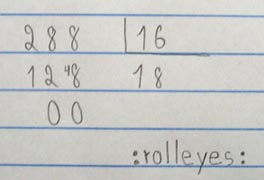 288 |16
128 18
00
:rolleyes: